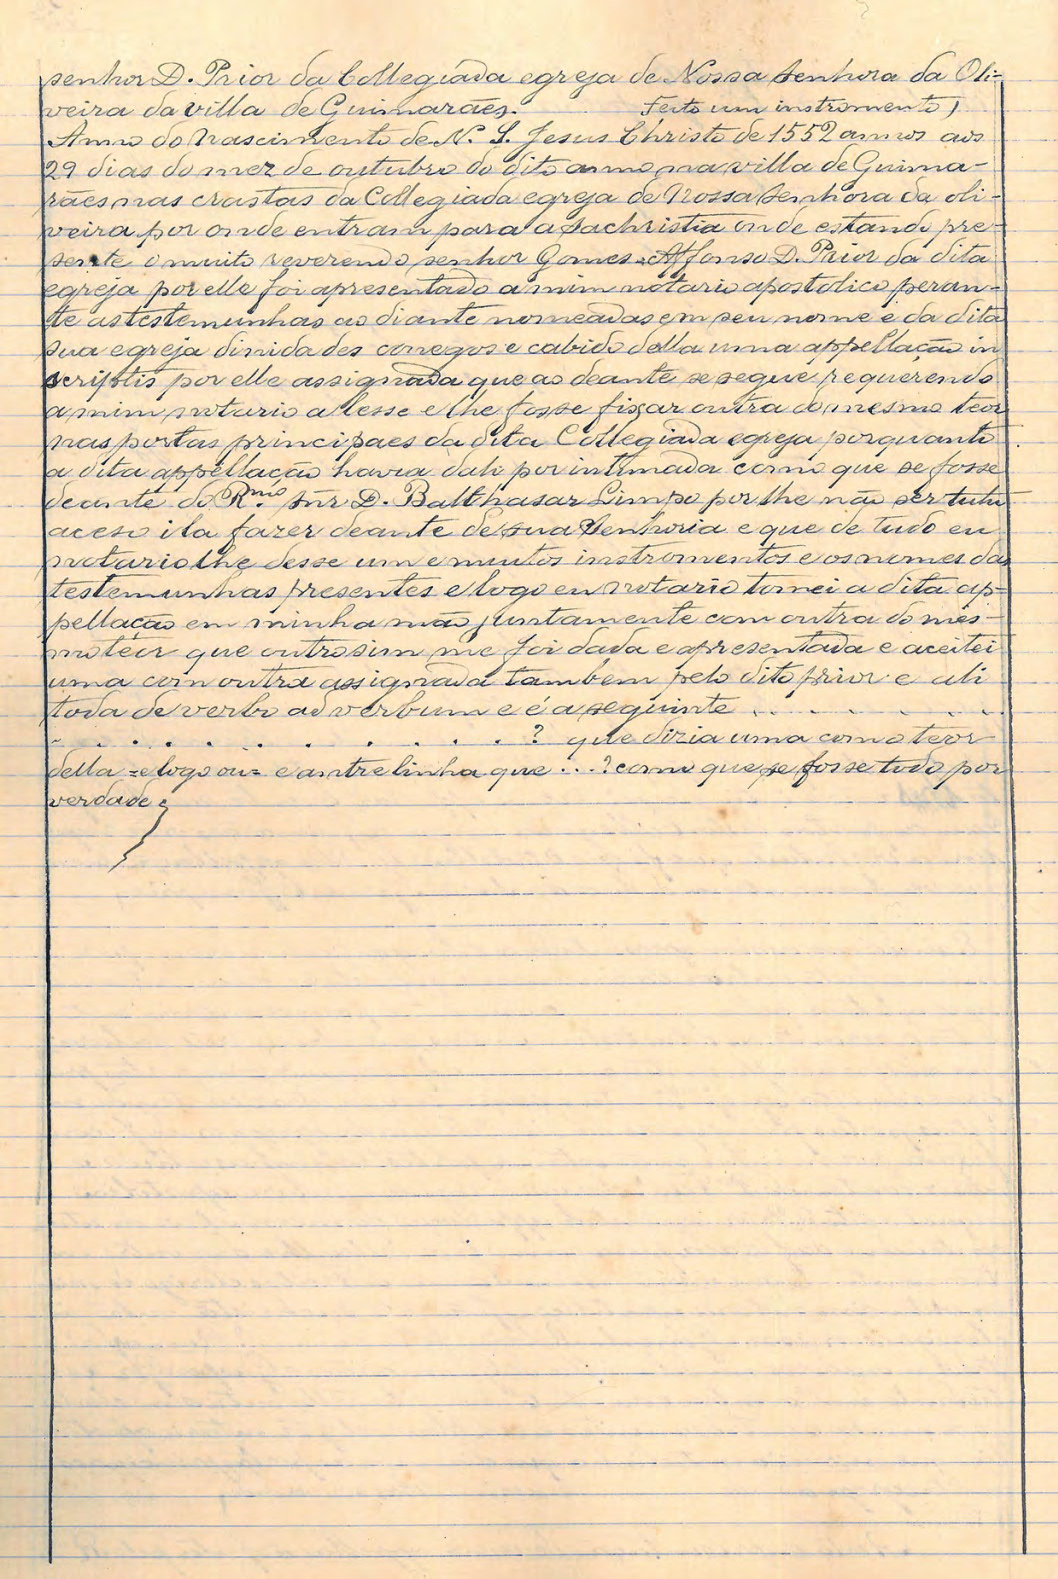 senhor D. Prior da Collegiada egreja de Nossa Senhora da Oli-
veira da villa de Guimarães. Feito um instromento)
Anno do Nascimento de N. S. Jesus Christo de 1552 annos aos
29 dias do mez de outubro do dito anno na villa de Guima-
rães nas crastas da Collegiada egreja de Nossa Senhora da oli-
veira por onde entram para a sachristia onde estando pre-
sente o muito reverendo senhor Gomes Affonso D. Prior da dita
egreja por elle foi apresentado a mim notario apostolico peran-
te as testemunhas ao diante nomeadas em seu nome e da dita
sua egreja dinidades conegos e cabido della uma appellação in
scriptis por elle assignada que ao deante se segue requerendo
a mim notario a lesse e lhe fosse fixar outra do mesmo teor
nas portas principaes da dita Collegiada egreja porquanto
a dita appellação havia dali por intimada como que se fosse
deante do R.mo snr D. Balthasar Limpo por lhe não ser tuto
aceso ila fazer deante de sua Senhoria e que de tudo eu
notario lhe desse um e muitos instromentos e os nomes das
testemunhas presentes e logo eu notario tomei a dita ap-
pellação em minha mão juntamente com outra do mes-
mo teor que outrosim me foi dada e apresentada e aceitei
uma com outra assignada tambem pelo dito prior e ali
toda de verbo ad verbum e é a seguinte . . . . . .
. . . . . . . . . . . ? que dizia uma com o teor
della = e logo ou = e antrelinha que ...? como que se fosse todo por
verdade